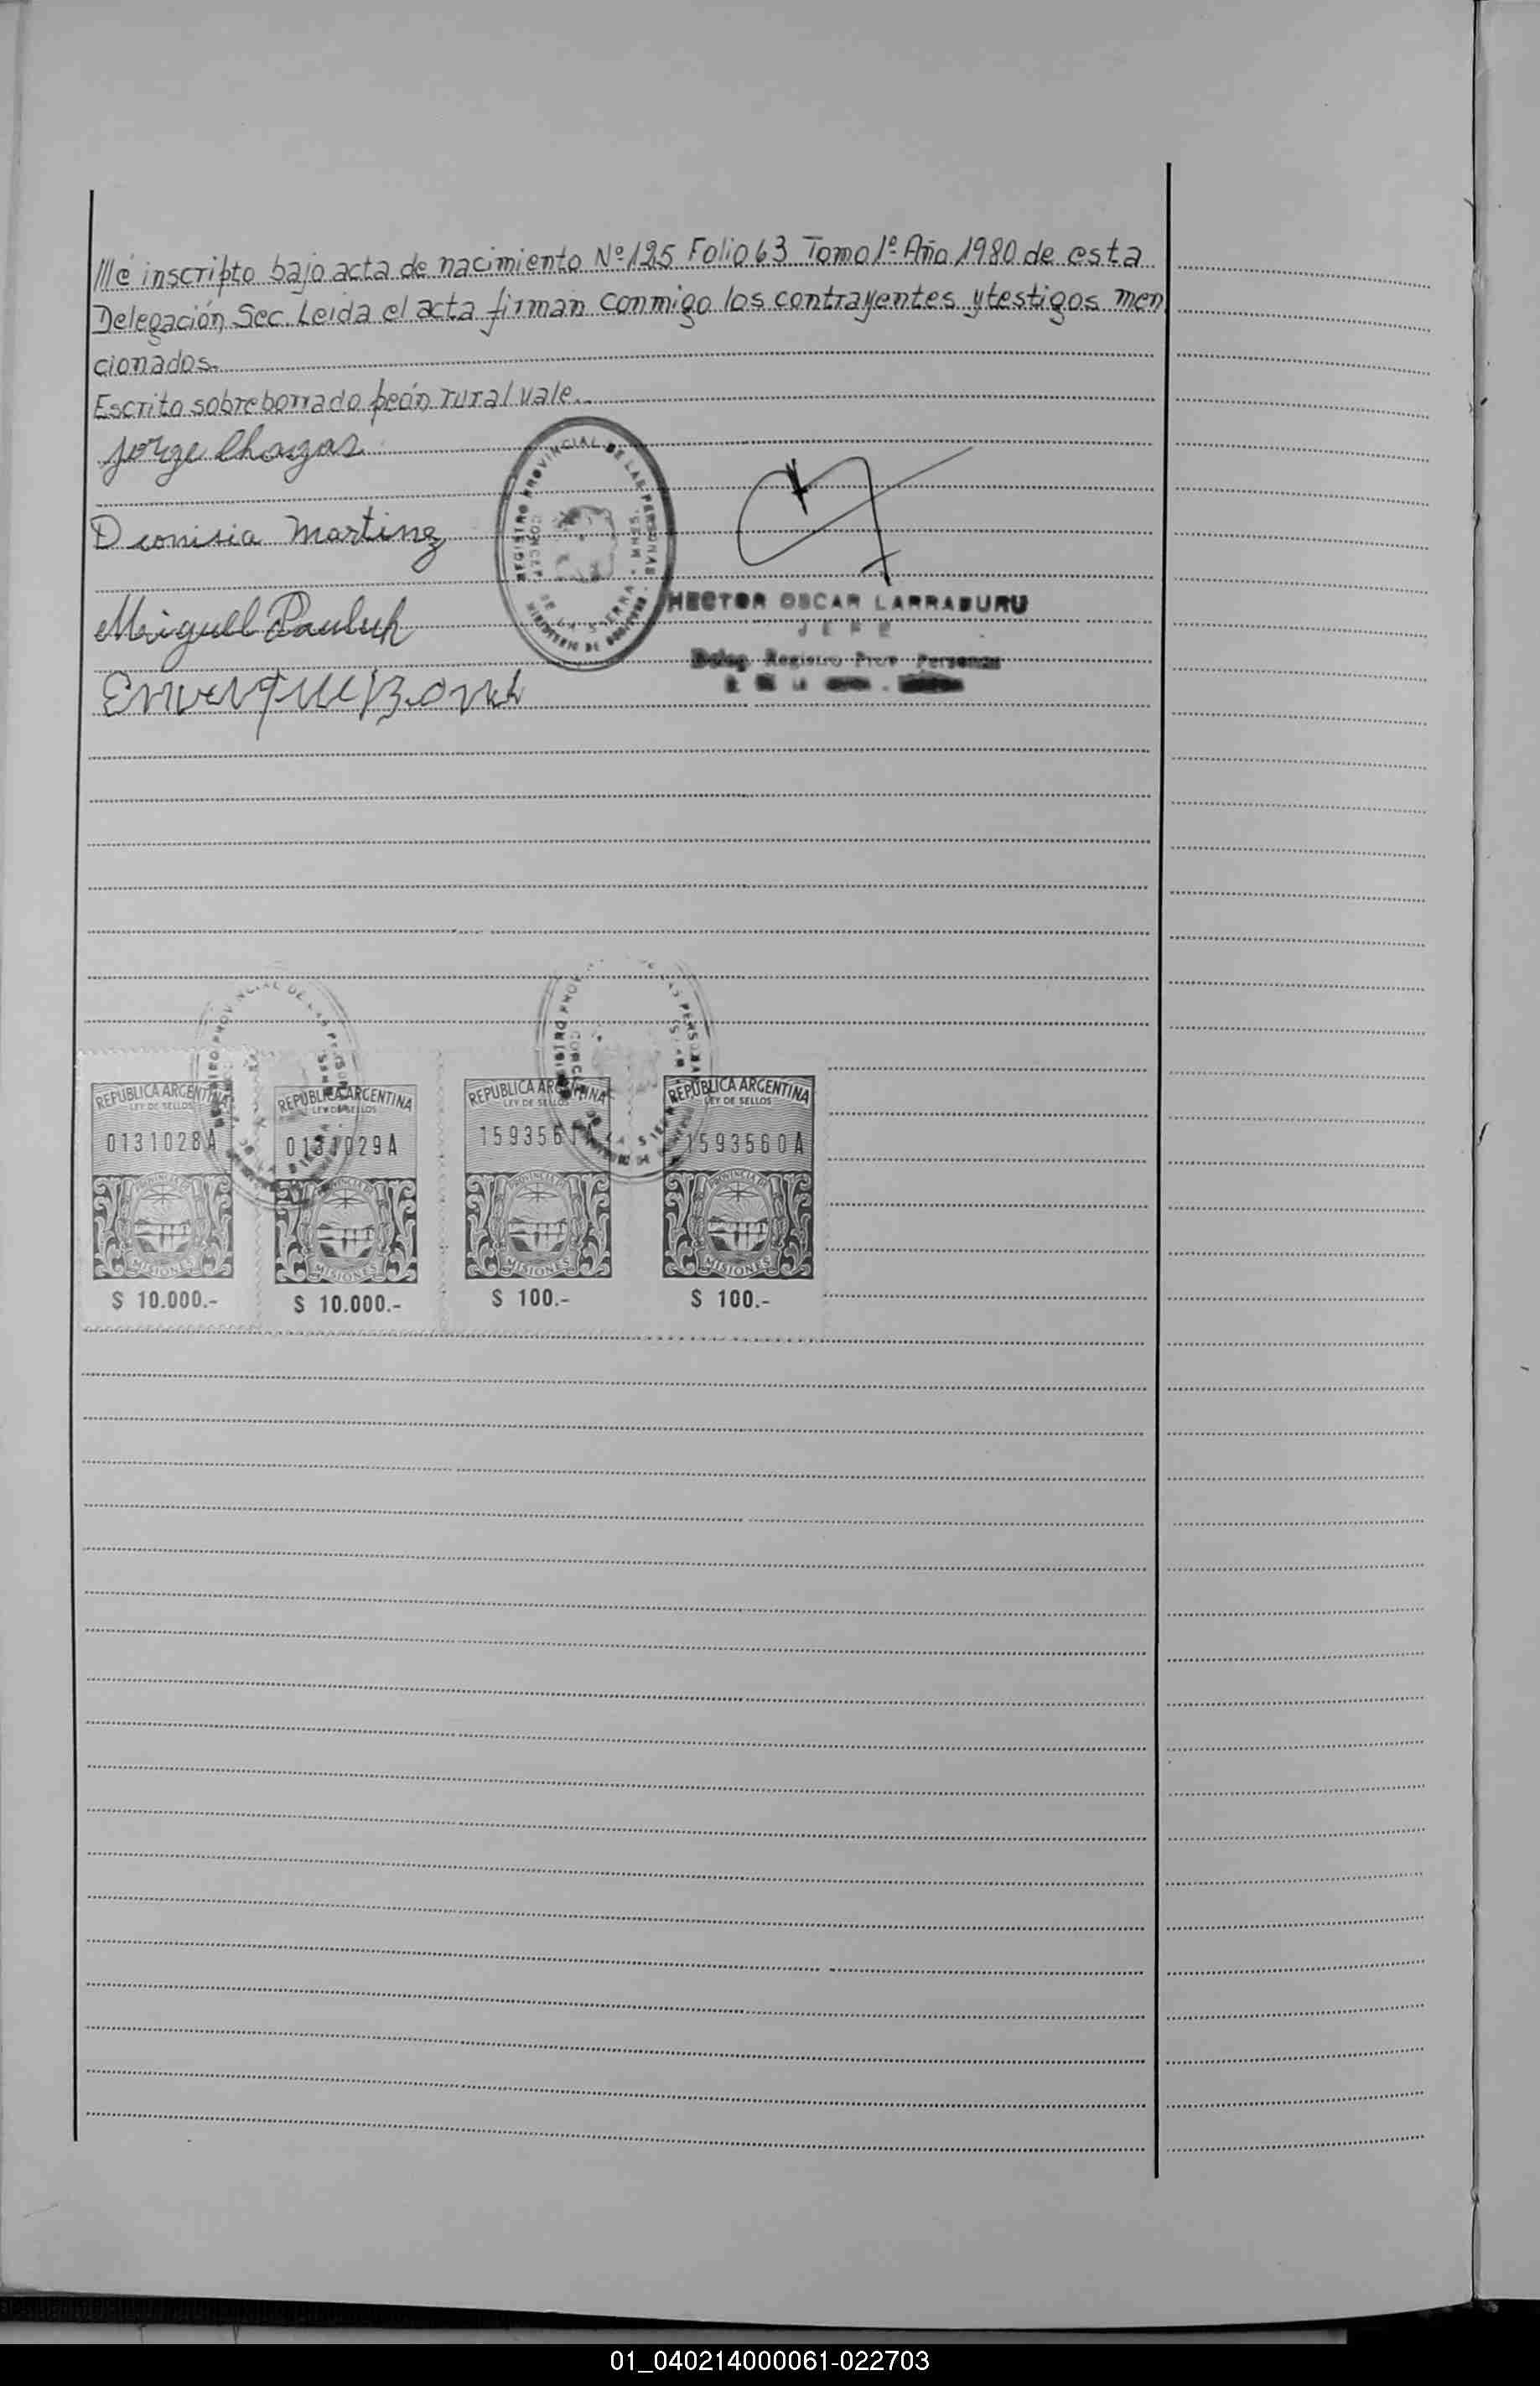 ///é inscripto bajo acta de nacimiento Nº 125 Folio 63 Tomo 1º Año 1980 de esta
Delegación Sec. Leida el acta firman conmigo los contrayentes y testigos men
cionados.
Escrito sobreborrado peón rural vale.
Jorge Chagas
Dionisia Martinez
REGISTRO PROVINCIAL DE LAS PERSONAS
MINISTERIO DE GOBIERNO
HECTOR OSCAR LARRABURU
JEFE
Deleg. Registro Prov. Personas
Miguel Pauluk
REPUBLICA ARGENTINA
LEY DE SELLOS
0131028A
PROVINCIA DE
MISIONES
$ 10.000.-
REPUBLICA ARGENTINA
LEY DE SELLOS
0131029A
PROVINCIA DE
MISIONES
$ 10.000.-
REPUBLICA ARGENTINA
LEY DE SELLOS
1593561A
PROVINCIA DE
MISIONES
$ 100.-
REPUBLICA ARGENTINA
LEY DE SELLOS
1593560A
PROVINCIA DE
MISIONES
$ 100.-
01_040214000061-022703